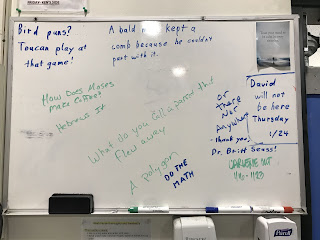 Bird puns?
Toucan play at
that game!
A bald man kept a
comb because he couldn't
part with it.
How Does Moses
Make Coffee?
Hebrews It
What do you call a parrot that
Flew away
A polygon
DO THE
MATH
or
There
Not
Anywhere
thank you
David
will not
be here
Thursday
1/24
Dr. Britt Seuss!
OUT
PURELL